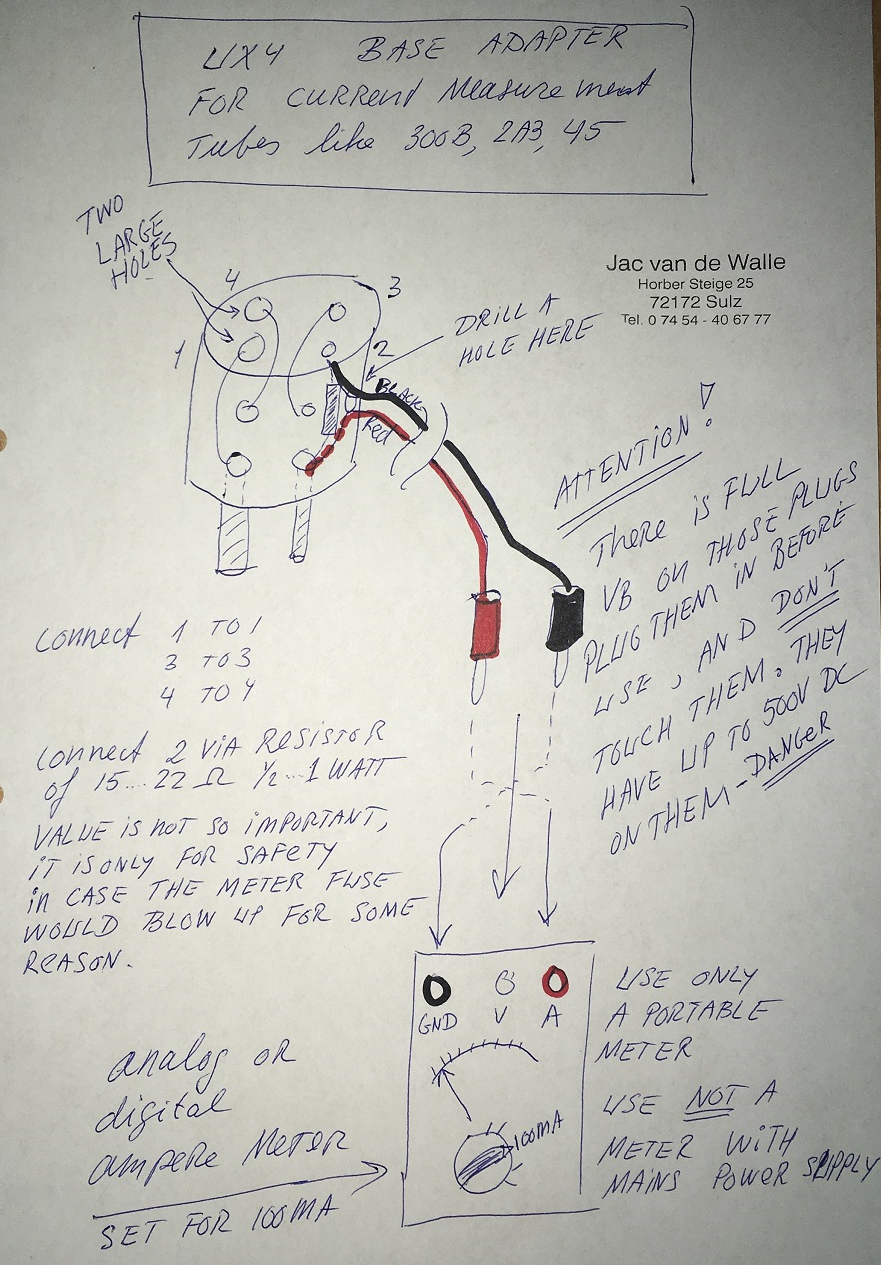 UX4 BASE ADAPTER
FOR CURRENT Measurement
Tubes like 300B, 2A3, 45
TWO
LARGE
HOLES
4
3
1
2
DRILL A
HOLE HERE
BLACK
Red
Jac van de Walle
Horber Steige 25
72172 Sulz
Tel. 0 74 54 - 40 67 77
ATTENTION!
There is FULL
VB ON THOSE PLUGS
PLUG THEM IN BEFORE
USE, AND DON'T
TOUCH THEM. THEY
HAVE UP TO 500V DC
ON THEM - DANGER
Connect 1 TO 1
3 TO 3
4 TO 4
Connect 2 VIA RESISTOR
of 15....22 Ω ½...1 WATT
VALUE is not so iMPORTANT,
iT iS ONLY FOR SAFETY
in CASE THE METER FUSE
WOULD BLOW UP FOR SOME
REASON.
GND V A
100MA
USE ONLY
A PORTABLE
METER
USE NOT A
METER WiTH
MAINS POWER SUPPLY
analog OR
digital
ampere Meter
SET FOR 100MA